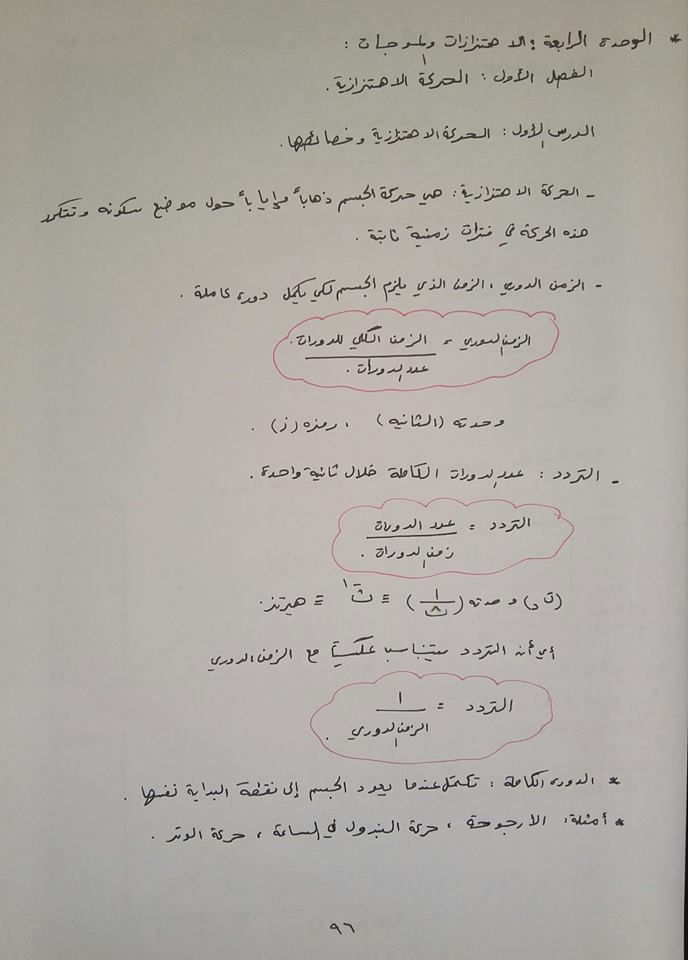 * الوحدة الرابعة : الاهتزازات والموجات :
الفصل الأول : الحركة الاهتزازية .
الدرس الأول : الحركة الاهتزازية وخصائصها .
- الحركة الاهتزازية : هي حركة الجسم ذهاباً وإياباً حول موضع سكونه وتتكرر
هذه الحركة في فترات زمنية ثابتة .
- الزمن الدوري : الزمن الذي يلزم الجسم لكي يكمل دورة كاملة .
الزمن الدوري = الزمن الكلي للدورات .
عدد الدورات .
وحدته (الثانيه) ، رمزه (ز) .
- التردد : عدد الدورات الكاملة خلال ثانية واحدة .
التردد = عدد الدورات
زمن الدورات .
وحدته (١/ث) ≡ ث-١ ≡ هيرتز .
أي أن التردد يتناسب عكسياً مع الزمن الدوري
التردد = ١
الزمن الدوري .
* الدورة الكاملة : تكتمل عندما يعود الجسم إلى نقطة البداية نفسها .
* أمثلة : الأرجوحة ، حركة البندول في الساعة ، حركة الوتر .
٩٦